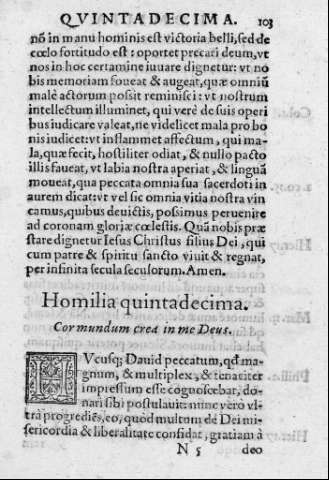 QVINTADECIMA. 103
nõ in manu hominis est victoria belli, sed de
cœlo fortitudo est: oportet precari deum, vt
nos in hoc certamine iuuare dignetur: vt no
bis memoriam foueat & augeat, quæ omniũ
malè actorum possit reminisci: vt nostrum
intellectum illuminet, qui verè de suis operi
bus iudicare valeat, ne videlicet mala pro bo
nis iudicet: vt inflammet affectum, qui ma-
la, quæ fecit, hostiliter odiat, & nullo pacto
illis faueat, vt labia nostra aperiat, & linguã
moueat, qua peccata omnia sua sacerdoti in
aurem dicat: vt vel sic omnia vitia nostra vin
camus, quibus deuictis, possimus peruenire
ad coronam gloriæ cœlestis. Quã nobis præ
stare dignetur Iesus Christus filius Dei, qui
cum patre & spiritu sancto viuit & regnat,
per infinita secula seculorum. Amen.
Homilia quintadecima.
Cor mundum crea in me Deus.
HVcusq; Dauid peccatum, qđ ma-
gnum, & multiplex, & tenaciter
impressum esse cognoscebat, do-
nari sibi postulauit: nunc verò vl-
trà progrediẽs, eo, quòd multùm de Dei mi-
sericordia & liberalitate confidat, gratiam à
N 5 deo